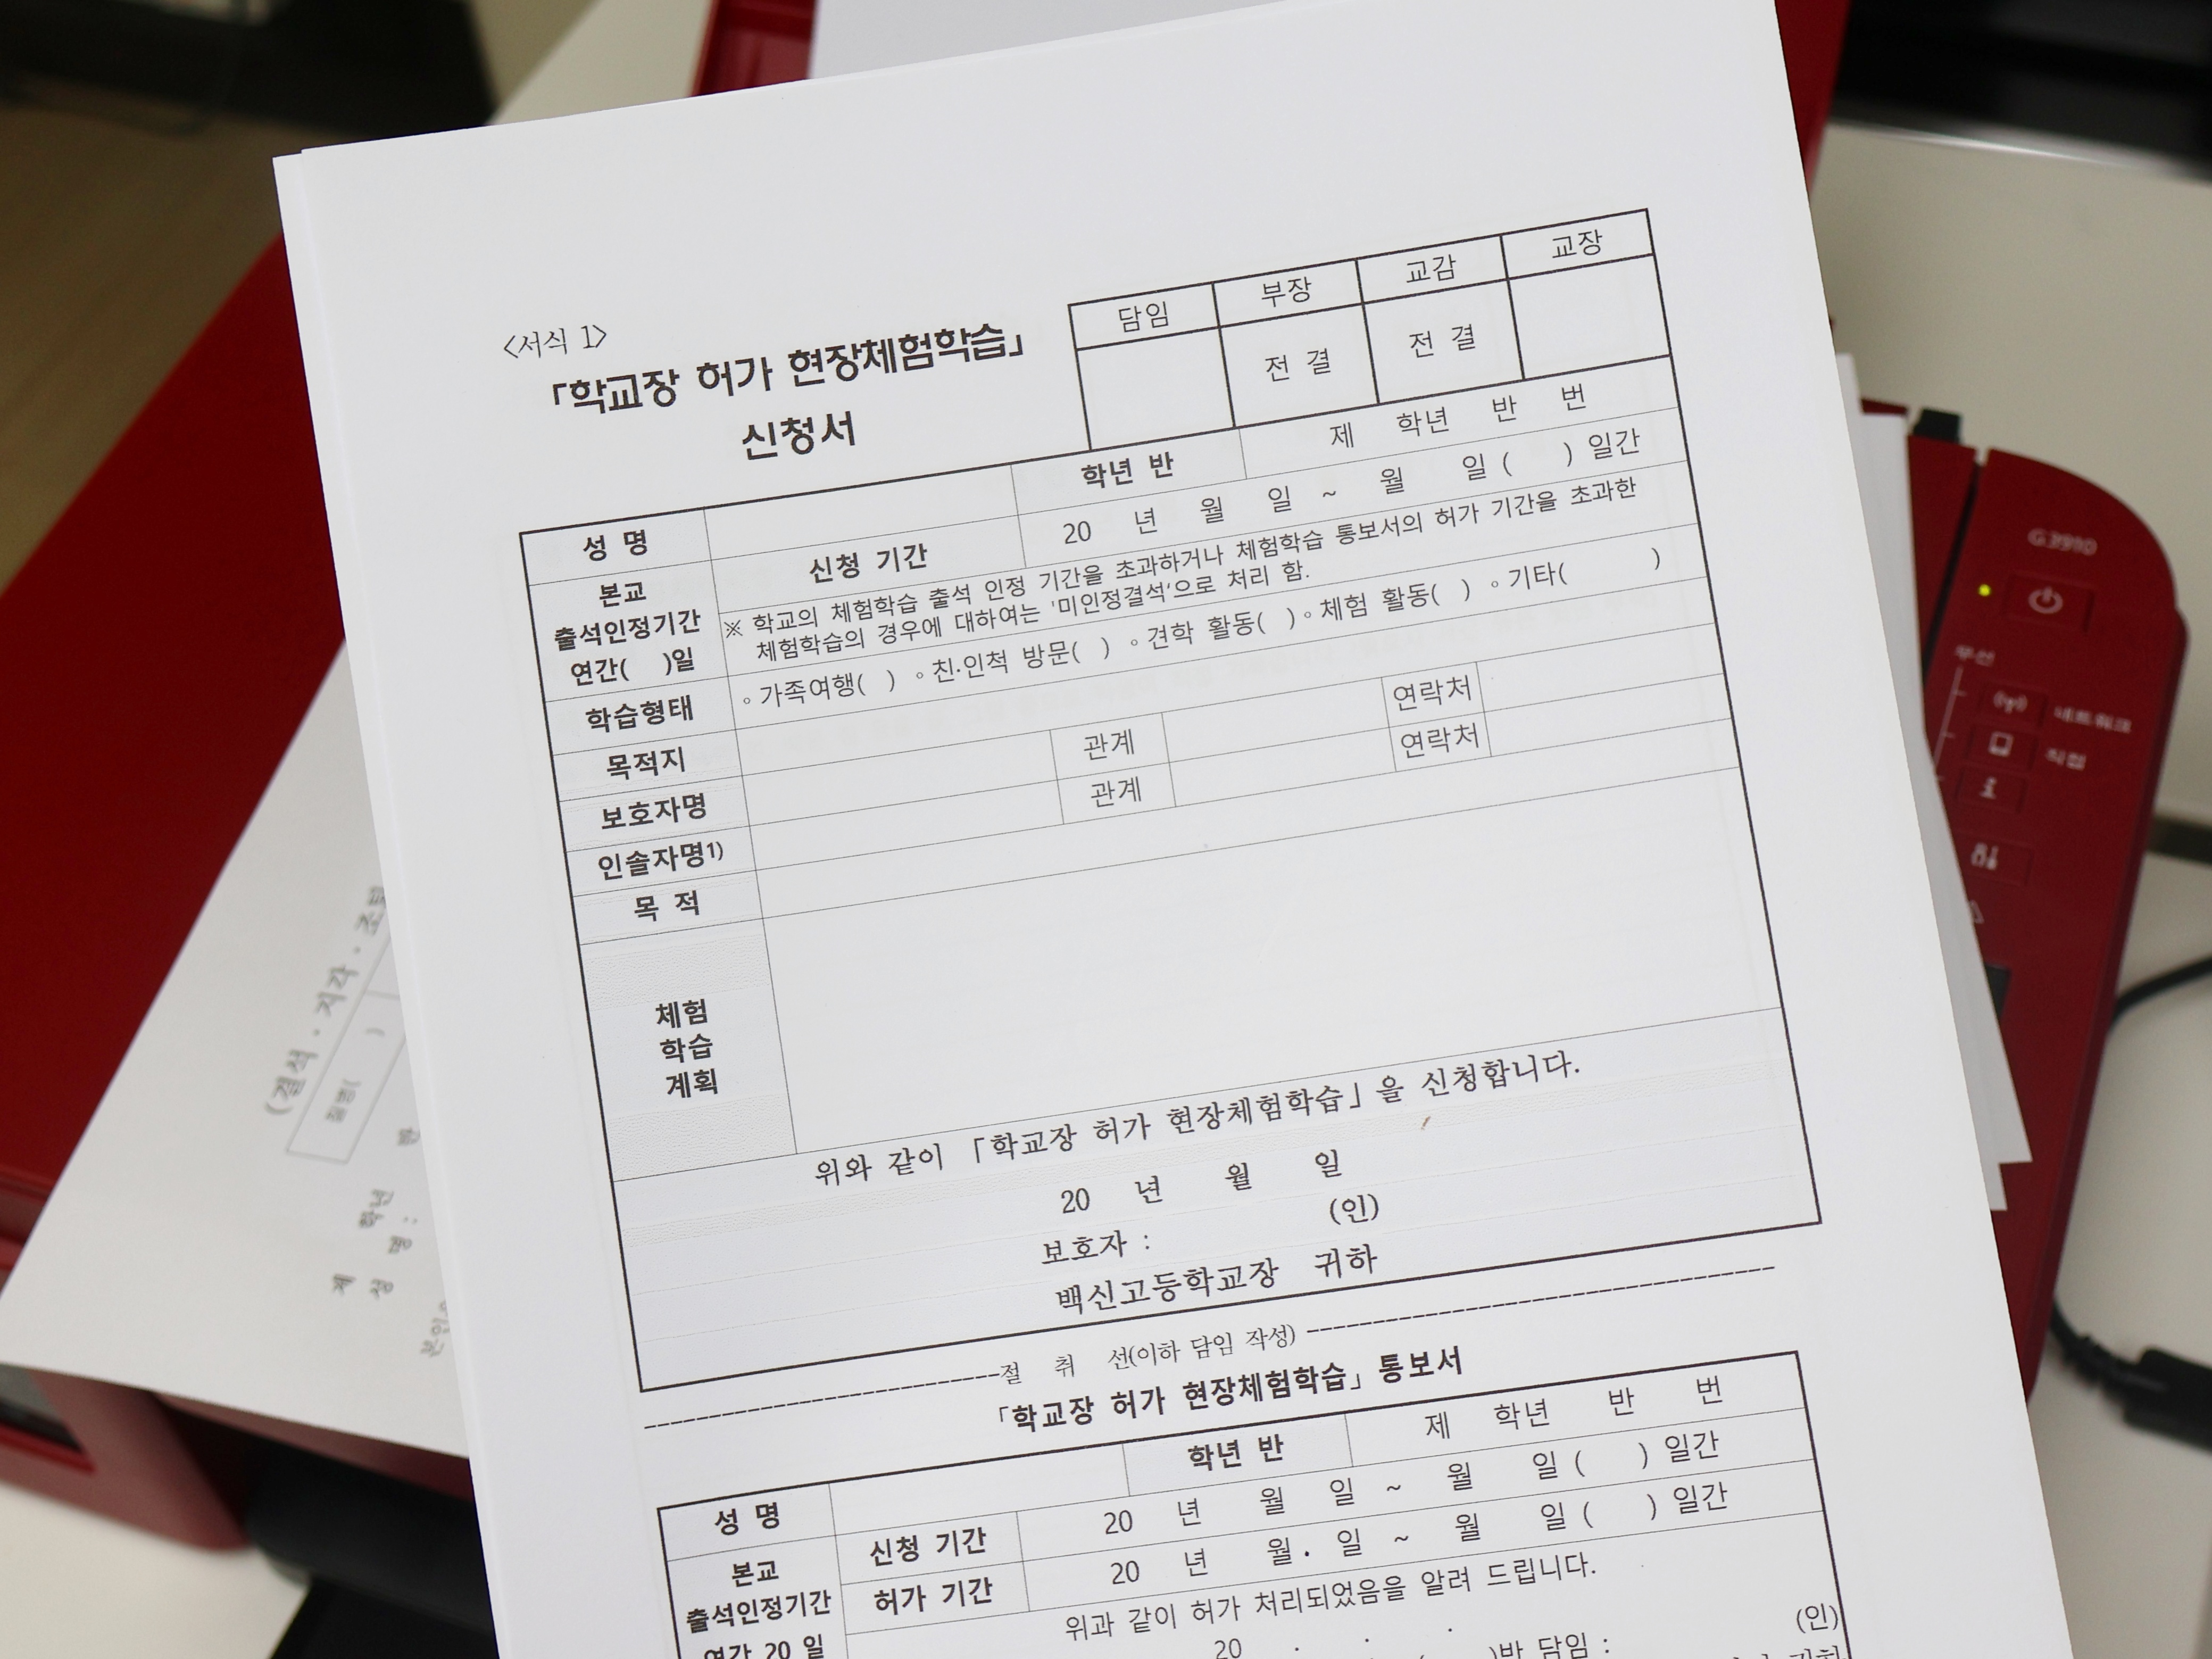 <서식 1>
「학교장 허가 현장체험학습」
신청서
담임 부장 교감 교장
전 결 전 결
성 명 학년 반 제 학년 반 번
본교
출석인정기간
연간( )일
신청 기간 20 년 월 일 ~ 월 일 ( ) 일간
※ 학교의 체험학습 출석 인정 기간을 초과하거나 체험학습 통보서의 허가 기간을 초과한
체험학습의 경우에 대하여는 '미인정결석'으로 처리 함.
학습형태 ◦ 가족여행( ) ◦ 친·인척 방문( ) ◦ 견학 활동( ) ◦ 체험 활동( ) ◦ 기타( )
목적지
보호자명 관계 연락처
인솔자명1) 관계 연락처
목 적
체험
학습
계획
위와 같이 「학교장 허가 현장체험학습」을 신청합니다.
20 년 월 일
보호자 : (인)
백신고등학교장 귀하
절 취 선(이하 담임 작성)
「학교장 허가 현장체험학습」 통보서
성 명 학년 반 제 학년 반 번
본교
출석인정기간
연간 20 일
신청 기간 20 년 월 일 ~ 월 일 ( ) 일간
허가 기간 20 년 월 . 일 ~ 월 일 ( ) 일간
위과 같이 허가 처리되었음을 알려 드립니다.
20 . . .
( )반 담임 : (인)
귀하
(결석 · 지각 ·
질병( )
반
학년
제
성 명 :
G3910
무선
네트워크
직접